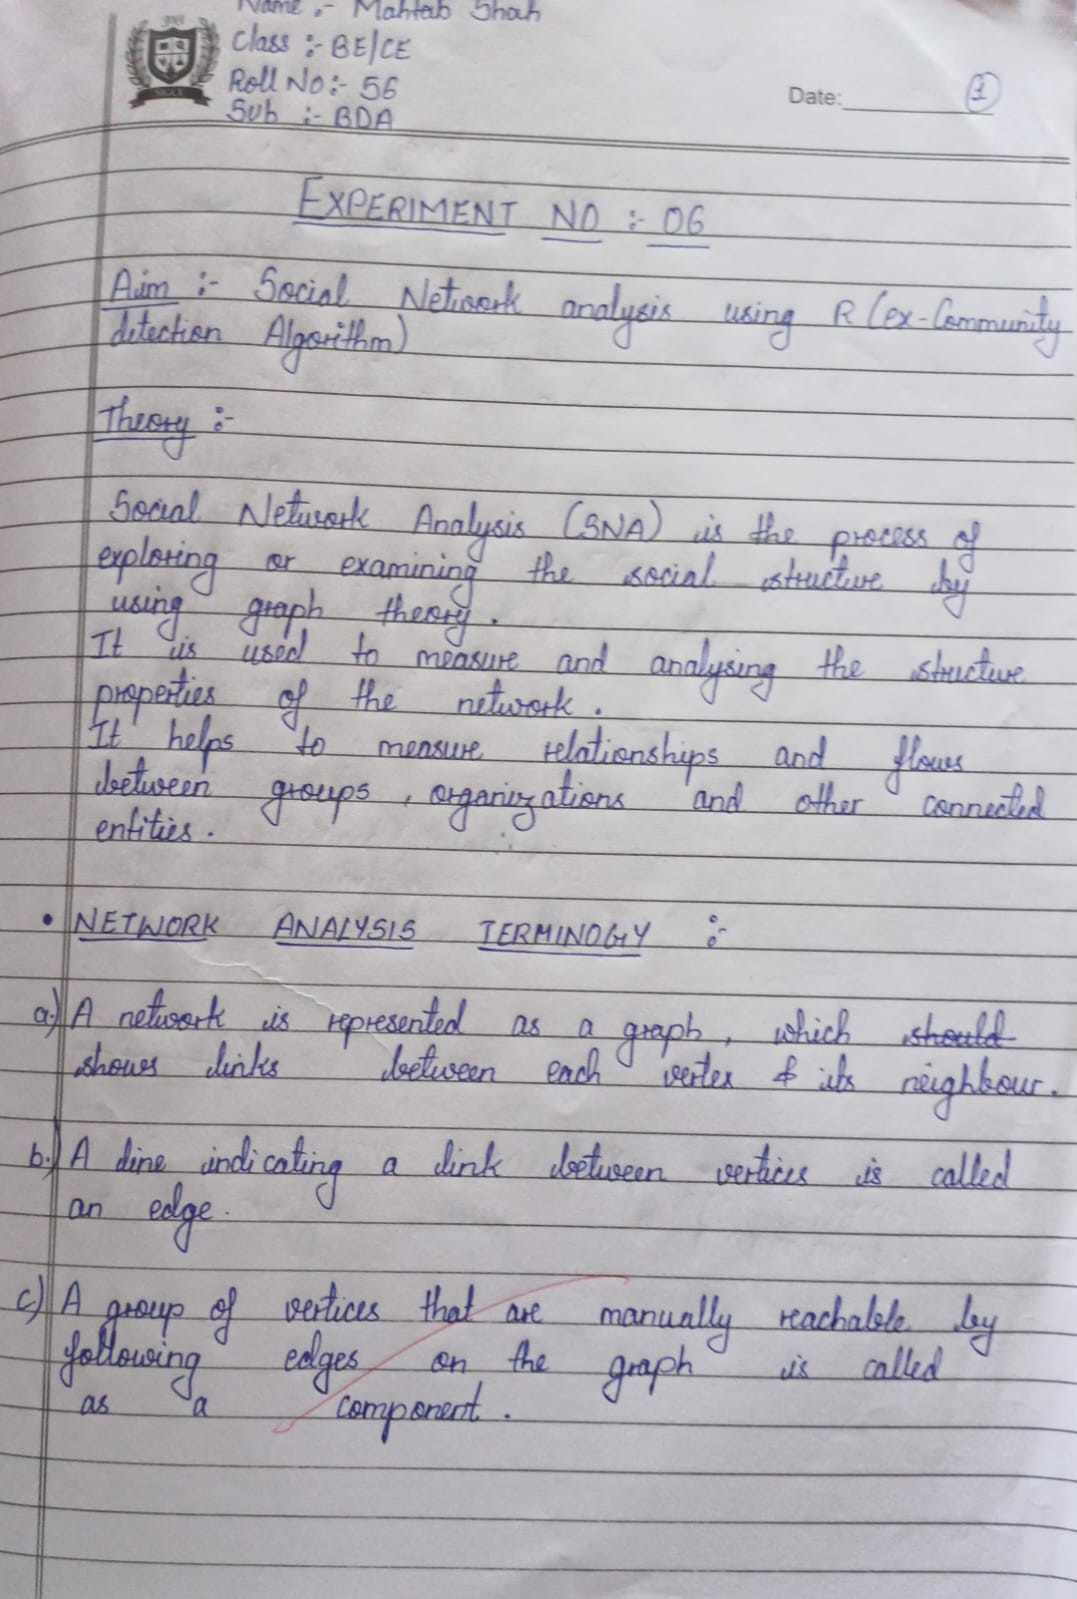 Name :- Mahtab Shah
Class :- BE/CE
Roll No :- 56
Sub :- BDA
Date:
1
EXPERIMENT NO :- 06
Aim :- Social Network analysis using R (ex-Community
detection Algorithm)
Theory :-
Social Network Analysis (SNA) is the process of
exploring or examining the social structure by
using graph theory.
It is used to measure and analysing the structure
properties of the network.
It helps to measure relationships and flows
between groups, organizations and other connected
entities.
• NETWORK ANALYSIS TERMINOGY :-
a) A network is represented as a graph, which should
shows links between each vertex & its neighbour.
b) A line indicating a link between vertices is called
an edge.
c) A group of vertices that are manually reachable by
following edges on the graph is called
as a component.